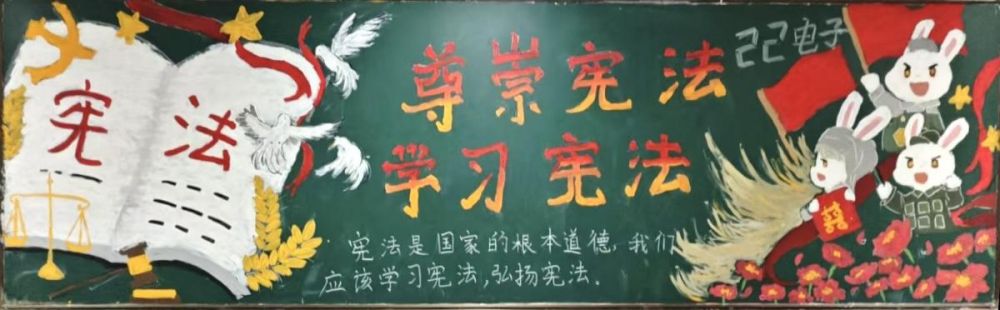 宪法
尊崇宪法
22电子
学习宪法
囍
宪法是国家的根本道德，我们
应该学习宪法，弘扬宪法．